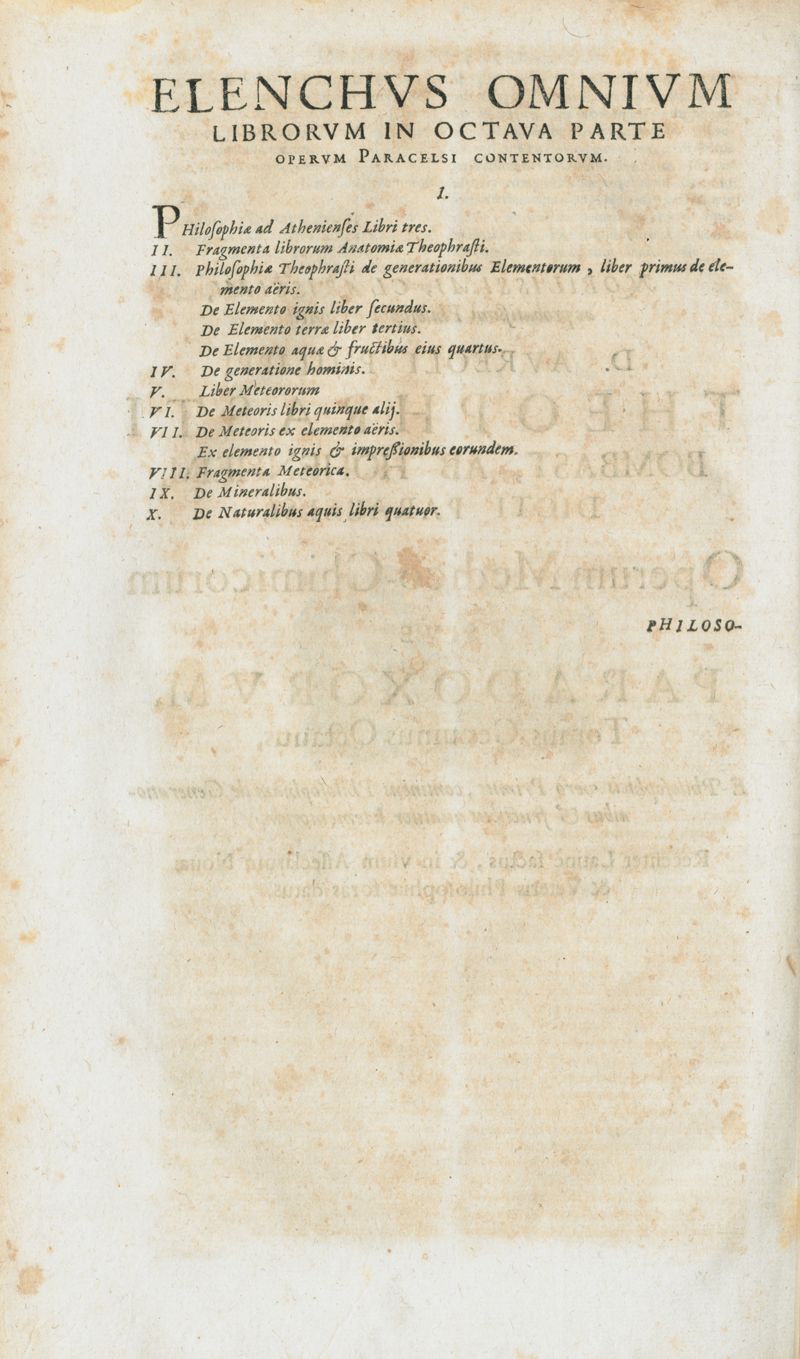 ELENCHVS OMNIVM
LIBRORVM IN OCTAVA PARTE
OPERVM PARACELSI CONTENTORVM.
I.
PHiloſophiæ ad Athenienſes Libri tres.
II. Fragmenta librorum Anatomiæ Theophraſti.
III. Philoſophiæ Theophraſti de generationibus Elementorum, liber primus de ele-
mento aëris.
De Elemento ignis liber ſecundus.
De Elemento terræ liber tertius.
De Elemento aquæ & fructibus eius quartus.
IV. De generatione hominis.
V. Liber Meteororum
VI. De Meteoris libri quinque alij.
VII. De Meteoris ex elemento aëris.
Ex elemento ignis & impreßionibus eorundem.
VIII. Fragmenta Meteorica.
IX. De Mineralibus.
X. De Naturalibus aquis libri quatuor.
PHILOSO-